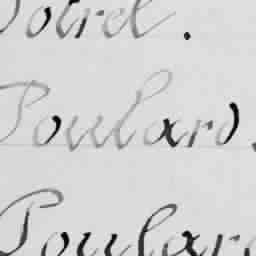 Poiret.
Poulard.
Poulard